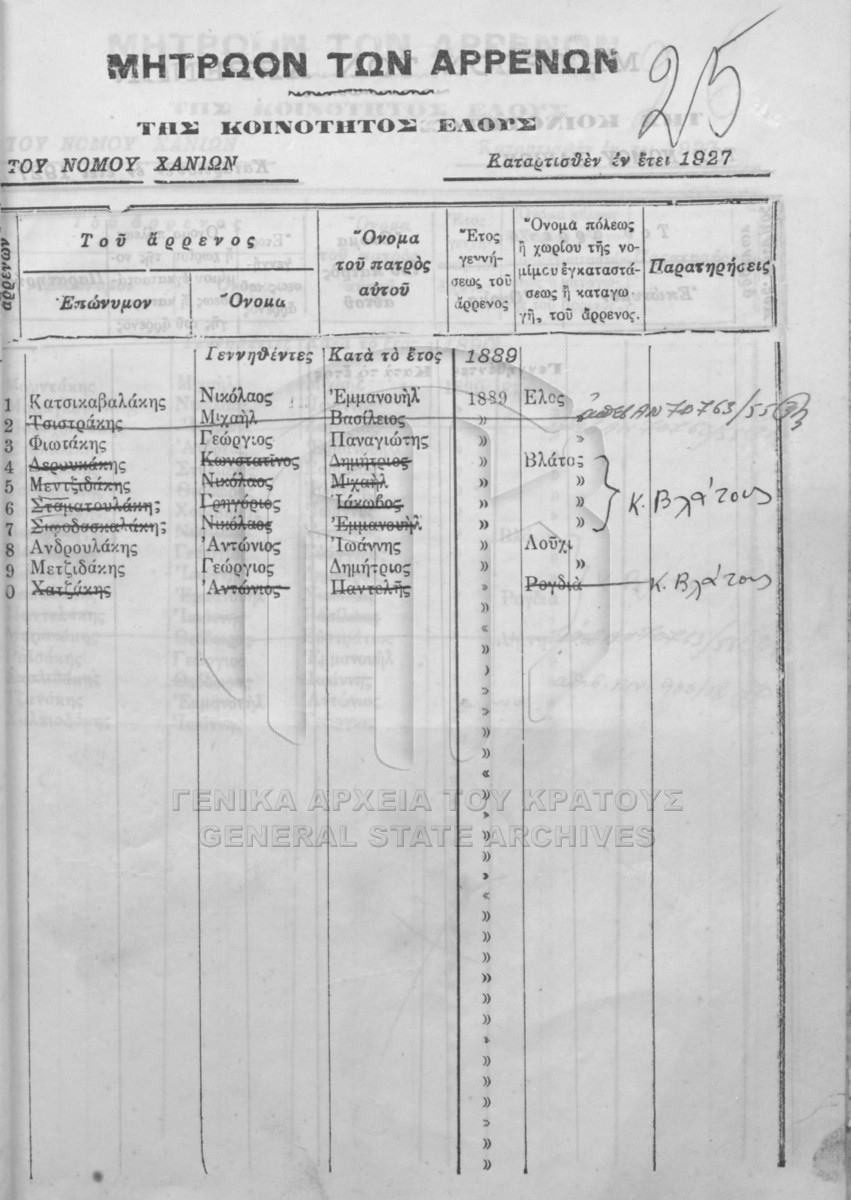 ΜΗΤΡΩΟΝ ΤΩΝ ΑΡΡΕΝΩΝ
25
ΤΗΣ ΚΟΙΝΟΤΗΤΟΣ ΕΛΟΥΣ
ΤΟΥ ΝΟΜΟΥ ΧΑΝΙΩΝ Καταρτισθὲν ἐν ἔτει 1927
Τοῦ ἄρρενος
Ἐπώνυμον Ὄνομα
Ὄνομα
τοῦ πατρὸς
αὐτοῦ
Ἔτος
γεννή-
σεως τοῦ
ἄρρενος
Ὄνομα πόλεως
ἢ χωρίου τῆς νο-
μίμου ἐγκαταστά-
σεως ἢ καταγω-
γῆς, τοῦ ἄρρενος.
Παρατηρήσεις
Γεννηθέντες Κατὰ τὸ ἔτος 1889
1 Κατσικαβαλάκης Νικόλαος Ἐμμανουὴλ 1889 Ἔλος
2 Τσιστράκης Μιχαὴλ Βασίλειος » 70763/55
3 Φιωτάκης Γεώργιος Παναγιώτης » »
4 Δερουκάκης Κωνστατῖνος Δημήτριος » Βλάτος
5 Μεντζιδάκης Νικόλαος Μιχαὴλ » »
6 Σταματουλάκης Γρηγόριος Ἰάκωβος » » Κ. Βλάτους
7 Σιφοδασκαλάκης Νικόλαος Ἐμμανουὴλ » »
8 Ανδρουλάκης Ἀντώνιος Ἰωάννης » Λοῦχι
9 Μετζιδάκης Γεώργιος Δημήτριος » »
0 Χατζάκης Ἀντώνιος Παντελῆς » Ρογδιὰ Κ. Βλάτους
ΓΕΝΙΚΑ ΑΡΧΕΙΑ ΤΟΥ ΚΡΑΤΟΥΣ
GENERAL STATE ARCHIVES